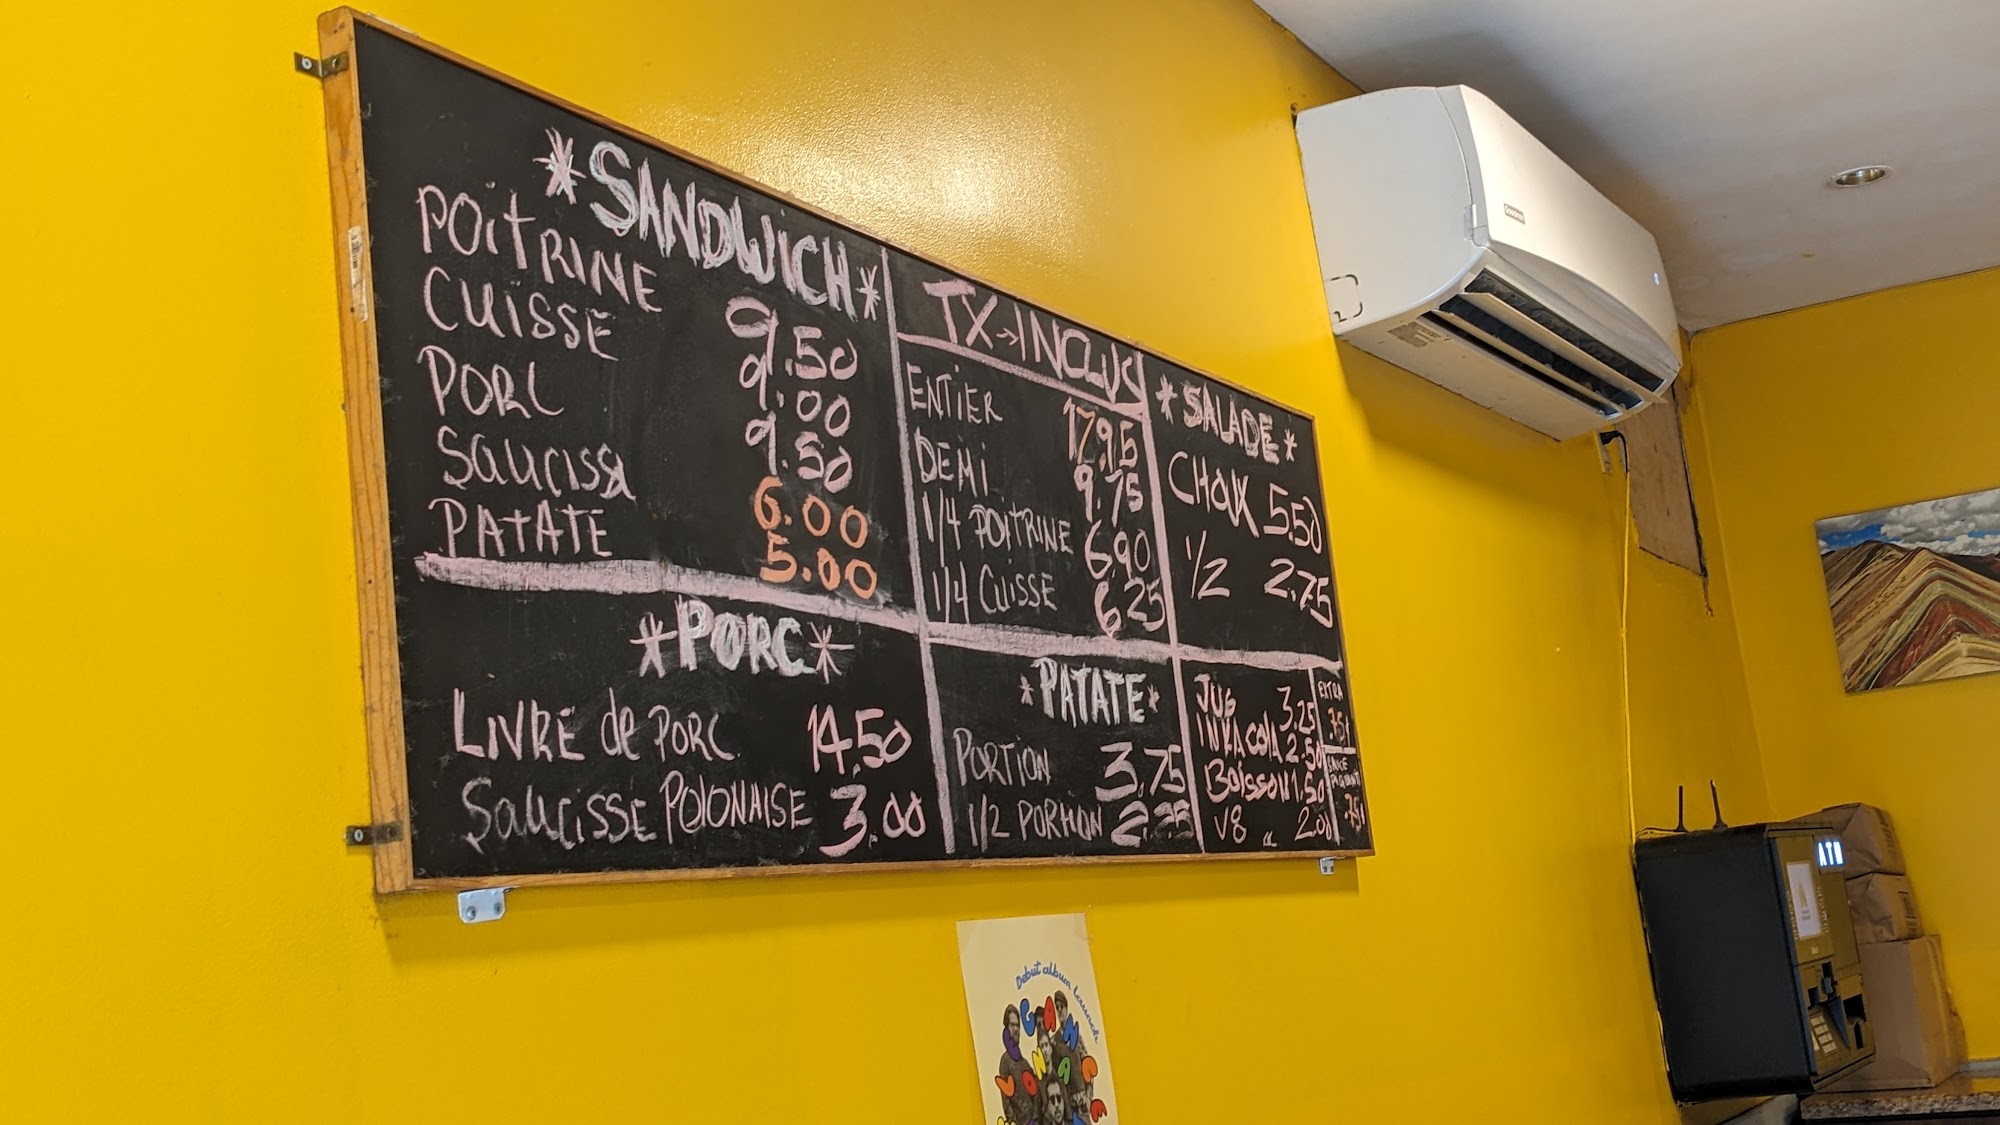 *SANDWICH*
POITRINE 9.50
CUISSE 9.00
PORC 9.50
SAUCISSE 6.00
PATATE 5.00
*PORC*
LIVRE de PORC 14.50
SAUCISSE POLONAISE 3.00
TX→INCLUS
ENTIER 17.95
DEMI 9.75
1/4 POITRINE 6.90
1/4 CUISSE 6.25
*PATATE*
PORTION 3.75
1/2 PORTION 2.25
*SALADE*
CHOUX 5.50
1/2 2.75
JUS 3.25
INKA COLA 2.50
BOISSON 1.50
V8 2.00
EXTRA
.75¢
SAUCE
.75¢
Goodman
ATM
Debut album launch